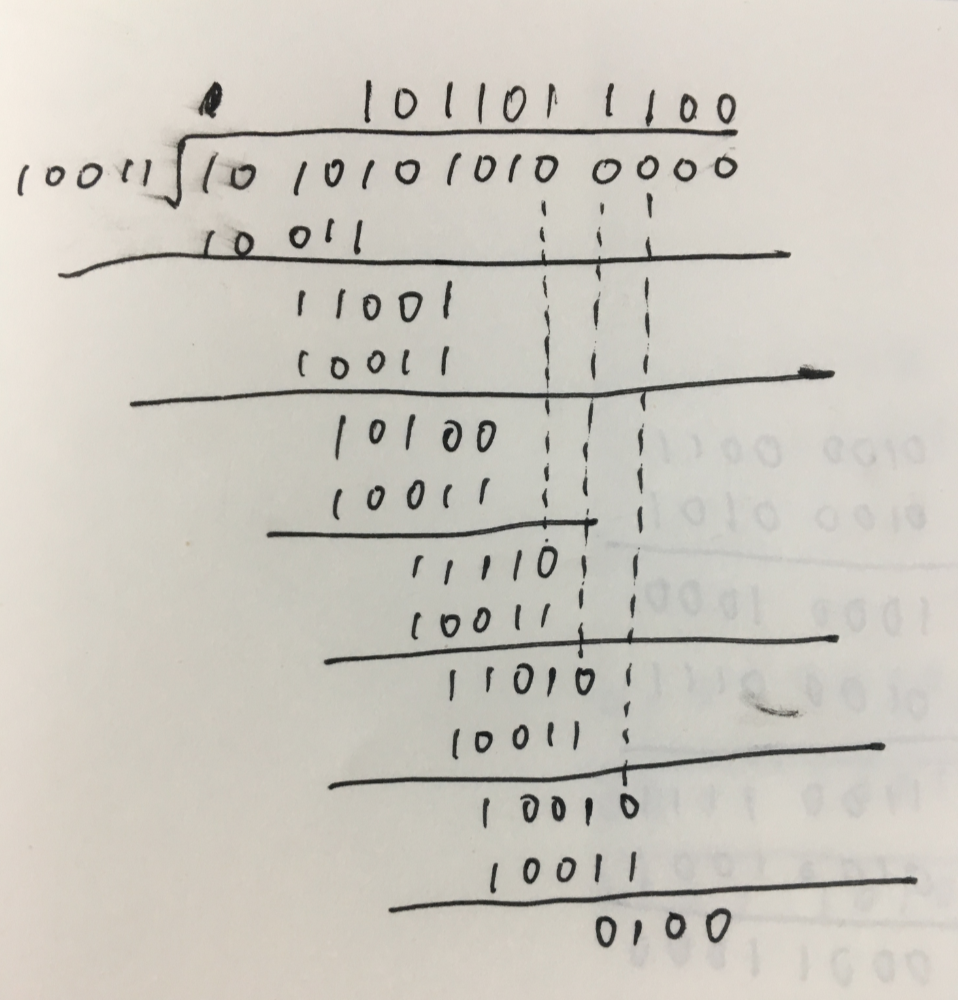 101101 1100
10011 10 10101010 0000
10 011
11001
10011
10100
10011
11110
10011
11010
10011
10010
10011
0100